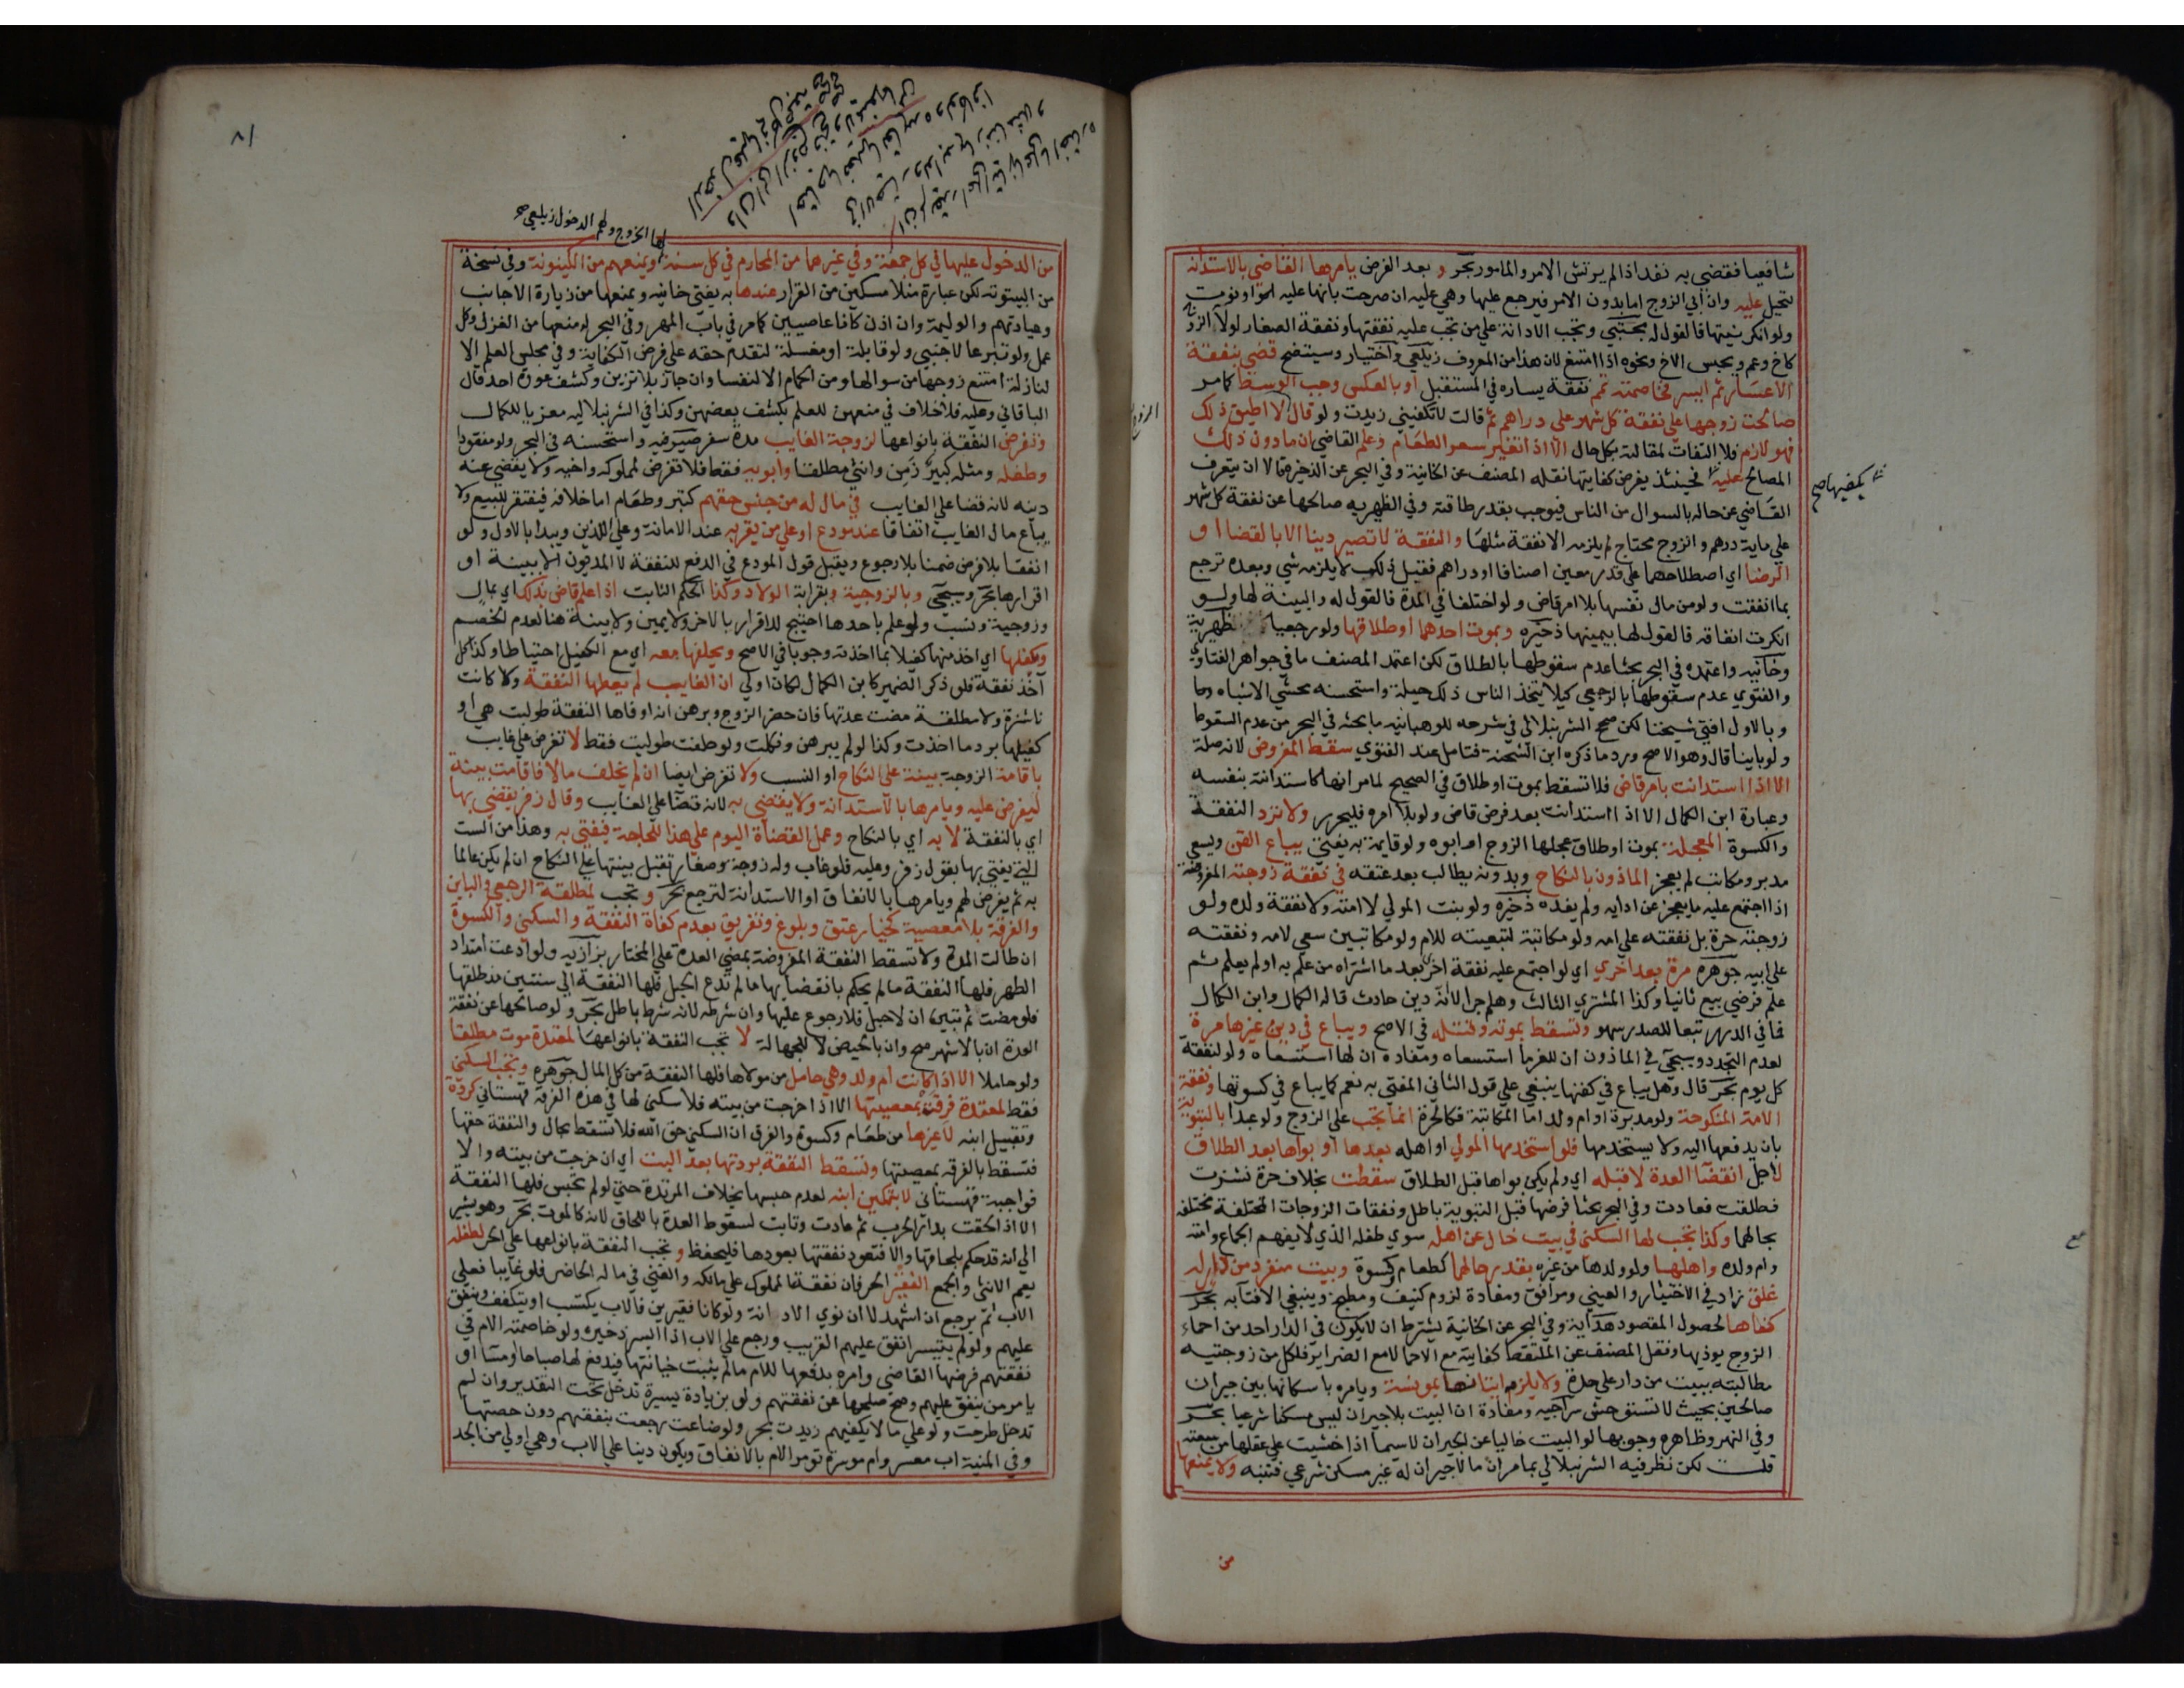 شافعيا فقضي به نفذ اذا لم يرتش الامر والمامور بحر وبعد الفرض يامرها القاضي بالاستدانة
لتحيل عليه وان ابي الزوج اما بدون الامر فيرجع عليها وهي عليه ان صرحت بانها عليه او نوت
ولو انكر نيتها فالقول له مجتبي وتجب الادانة علي من تجب عليه نفقتها ونفقة الصغار لولا الزوج
كاخ وعم ويحبس الاخ ونحوه اذا امتنع لان هذا من المعروف زيلعي واختيار وسيتضح قضي بنفقة
الاعسار ثم ايسر فخاصمته تمم نفقة يساره في المستقبل او بالعكس وجب الوسط كما مر
صالحت زوجها علي نفقة كل شهر علي دراهم ثم قالت لا تكفيني زيدت ولو قال لا اطيق ذلك
فهو لازم فلا التفات لمقالته بكل حال الا اذا تغير سعر الطعام وعلم القاضي ان ما دون ذلك
المصالح عليه فحينئذ يفرض كفايتها نقله المصنف عن الخانية وفي البحر عن الذخيرة الا ان يتعرف
القاضي عن حاله بالسوال من الناس فيوجب بقدر طاقته وفي الظهيريه صالحها عن نفقة كل شهر
علي ماية درهم والزوج محتاج لم يلزمه الا نفقة مثلها والنفقة لا تصير دينا الا بالقضا او
الرضا اي اصطلاحهما علي قدر معين اصنافا او دراهم فقبل ذلك لا يلزمه شي وبعده ترجع
بما انفقت ولو من مال نفسها بلا امر قاض ولو اختلفا في المدة فالقول له والبينة لها ولو
انكرت انفاقه فالقول لها بيمينها ذخيره وبموت احدهما او طلاقها ولو رجعيا ظهيرية
وخانيه واعتمده في البحر بحثا عدم سقوطها بالطلاق لكن اعتمد المصنف ما في جواهر الفتاوي
والفتوي عدم سقوطها بالرجعي كيلا يتخذ الناس ذلك حيلة واستحسنه محشي الاشباه
وبالاول افتي شيخنا لكن صحح الشرنبلالي في شرحه للوهبانيه ما بحثه في البحر من عدم السقوط
ولو باينا قال وهو الاصح ورد ما ذكره ابن الشحنة فتامل عند الفتوي سقط المفروض لانه صلة
الا اذا استدانت بامر قاض فلا تسقط بموت او طلاق في الصحيح لما مر انها كاستدانته بنفسه
وعبارة ابن الكمال الا اذا استدانت بعد فرض قاض ولو بلا امره فليحرر ولا ترد النفقة
والكسوة المعجلة بموت او طلاق عجلها الزوج او ابوه ولو قايمة به يفتي يباع القن ويسعي
مدبر ومكاتب لم يعجز الماذون بالنكاح وبدونه يطالب بعد عتقه في نفقة زوجته المفروضة
اذا اجتمع عليه ما يعجز عن ادايه ولم يفده ذخيره ولو بنت المولي لا امته ولا نفقة ولده ولو
زوجته حرة بل نفقته علي امه ولو مكاتبة لتبعيته للام ولو مكاتبين سعي لامه ونفقته
علي ابيه جوهره مرة بعد اخري اي لو اجتمع عليه نفقة اخري بعد ما اشتراه من علم به او لم يعلم ثم
علم فرضي بيع ثانيا وكذا المشتري الثالث وهلم جرا لانه دين حادث قاله الكمال وابن الكمال
فما في الدرر تبعا للصدر سهو وتسقط بموته وقتله في الاصح ويباع في دين غيرها مرة
لعدم التجدد وسيجي في الماذون ان للغرما استسعاه ومفاده ان لها استسعاه ولو لنفقة
كل يوم بحر قال وهل يباع في كفنها ينبغي علي قول الثاني المفتي به نعم كما يباع في كسوتها ونفقة
الامة المنكوحة ولو مدبرة او ام ولد اما المكاتبة فكالحرة انما تجب علي الزوج ولو عبدا بالتبوية
بان يدفعها اليه ولا يستخدمها فلو استخدمها المولي او اهله بعدها او بواها بعد الطلاق
لاجل انقضا العدة لا قبله اي ولم يكن بواها قبل الطلاق سقطت بخلاف حرة نشزت
فطلقت فعادت وفي البحر بحثا فرضها قبل التبوية باطل ونفقات الزوجات المختلفة مختلفة
بحالهما وكذا تجب لها السكني في بيت خال عن اهله سوي طفله الذي لا يفهم الجماع وامته
وام ولده واهلها ولو ولدها من غيره بقدر حالهما كطعام وكسوة وبيت منفرد من دار له
غلق زاد في الاختيار والعيني ومرافق ومفادة لزوم كنيف ومطبخ وينبغي الافتآ به بحر
كفاها لحصول المقصود هداية وفي البحر عن الخانية يشترط ان لا يكون في الدار احد من احماء
الزوج يوذيها ونقل المصنف عن الملتقط كفايته مع الاحما لا مع الضراير فلكل من زوجتيه
مطالبته ببيت من دار علي حدة ولا يلزمه اتيانها بمونسة ويامره باسكانها بين جيران
صالحين بحيث لا تستوحش سراجيه ومفادة ان البيت بلا جيران ليس مسكنا شرعيا بحر
وفي النهر وظاهره وجوبها لو البيت خاليا عن الجيران لا سيما اذا خشيت علي عقلها من سعته
قلت لكن نظر فيه الشرنبلالي بما مر ان ما لا جيران له غير مسكن شرعي فتنبه ولا يمنعها
من
يكفيها صح
الزوج
٨١
لها الخروج ولهم الدخول زيلعي صح
من الدخول عليها في كل جمعة وفي غيرهما من المحارم في كل سنة ويمنعهم من الكينونة وفي نسخة
من البيتوتة لكن عبارة منلا مسكين من القرار عندها به يفتي خانيه ويمنعها من زيارة الاجانب
وعيادتهم والوليمة وان اذن كانا عاصيين كما مر في باب المهر وفي البحر له منعها من الغزل وكل
عمل ولو تبرعا لاجنبي ولو قابلة او مغسلة لتقدم حقه علي فرض الكفاية ومن مجلس العلم الا
لنازلة امتنع زوجها من سوالها ومن الحمام الا لنفسا وان جاز بلا تزين وكشف عورة احد قال
الباقاني وعليه فلا خلاف في منعهن للعلم بكشف بعضهن وكذا في الشرنبلاليه معزيا للكمال
وتفرض النفقة بانواعها لزوجة الغايب مدة سفر صيرفيه واستحسنه في البحر ولو مفقودا
وطفله ومثله كبير زمن وانثي مطلقا وابويه فقط فلا تفرض لمملوكه واخيه ولا يقضي عنه
دينه لانه قضا علي الغايب في مال له من جنس حقهم كتبر وطعام اما خلافه فيفتقر للبيع ولا
يباع مال الغايب اتفاقا عند مودع او علي من يقر به عند الامانة وعلي للدين ويبدا بالاول ولو
انفقا بلا فرض ضمنا بلا رجوع ويقبل قول المودع في الدفع للنفقة لا المديون الا ببينة او
اقرارها بحر وسيجي وبالزوجية وبقرابة الولاد وكذا الحكم الثابت اذا علم قاض بذلك اي بمال
وزوجية ونسب ولو علم باحدها احتيج للاقرار بالاخر ولا يمين ولا بينة هنا لعدم الخصم
وكفلها اي اخذ منها كفيلا بما اخذته وجوبا في الاصح ويحلفها معه اي مع الكفيل احتياطا وكذا كل
آخذ نفقة فلو ذكر الضمير كابن الكمال لكان اولي ان الغايب لم يعطها النفقة ولا كانت
ناشزة ولا مطلقة مضت عدتها فان حضر الزوج وبرهن انه اوفاها النفقة طولبت هي او
كفيلها برد ما اخذت وكذا لو لم يبرهن ونكلت ولو حلفت طولبت فقط لا تفرض علي غايب
باقامة الزوجة بينة علي النكاح او النسب ولا تفرض ايضا ان لم يخلف مالا فاقامت بينة
ليفرض عليه ويامرها بالاستدانة ولا يقضي به لانه قضآ علي الغايب وقال زفر يقضي بها
اي بالنفقة لا به اي بالنكاح وعمل القضاة اليوم علي هذا للحاجة فيفتي به وهذا من الست
التي يفتي بها بقول زفر وعليه فلو غاب وله زوجة وصغار تقبل بينتها علي النكاح ان لم يكن عالما
به ثم يفرض لهم ويامرها بالانفاق او الاستدانة لترجع بحر وتجب لمطلقة الرجعي والباين
والفرقة بلا معصية كخيار عتق وبلوغ وتفريق بعدم كفاة النفقة والسكني والكسوة
ان طالت المدة ولا تسقط النفقة المفروضة بمضي العدة علي المختار بزازيه ولو ادعت امتداد
الطهر فلها النفقة ما لم يحكم بانقضايها ما لم تدع الحبل فلها النفقة الي سنتين مذ طلقها
فلو مضت ثم تبين ان لا حبل فلا رجوع عليها وان شرطه لانه شرط باطل بحر ولو صالحها عن نفقة
العدة ان بالاشهر صح وان بالحيض لا للجهالة لا تجب النفقة بانواعها لمعتدة موت مطلقا
ولو حاملا الا اذا كانت ام ولد وهي حامل من مولاها فلها النفقة من كل المال جوهره وتجب السكني
فقط لمعتدة فرقة بمعصيتها الا اذا خرجت من بيته فلا سكني لها في هذه الفرقة قهستاني كردة
وتقبيل ابنه لا غيرها من طعام وكسوة والفرق ان السكني حق الله فلا تسقط بحال والنفقة حقها
فتسقط بالفرقة بمعصيتها وتسقط النفقة بردتها بعد البت اي ان خرجت من بيته والا
فواجبة قهستاني لا بتمكين ابنه لعدم حبسها بخلاف المرتدة حتي لو لم تحبس فلها النفقة
الا اذا لحقت بدار الحرب ثم عادت وتابت لسقوط العدة باللحاق لانه كالموت بحر وهو يشير
الي انه قد حكم بلحاقها والا فتعود نفقتها بعودها فليحفظ وتجب النفقة بانواعها علي الحر لطفله
يعم الانثي والجمع الفقير الحر فان نفقة المملوك علي مالكه والغني في ماله الحاضر فلو غايبا فعلي
الاب ثم يرجع ان اشهد لا ان نوي الا ديانة ولو كانا فقيرين فالاب يكتسب او يتكفف وينفق
عليهم ولو لم يتيسر انفق عليهم القريب ورجع علي الاب اذا ايسر ذخيره ولو خاصمته الام في
نفقتهم فرضها القاضي وامره بدفعها للام ما لم يثبت خيانتها فيدفع لها صباحا ومسا او
يامر من ينفق عليهم وصح صلحها عن نفقتهم ولو بزيادة يسيرة تدخل تحت التقدير وان لم
تدخل طرحت ولو علي ما لا يكفيهم زيدت بحر ولو ضاعت رجعت بنفقتهم دون حصتها
وفي المنية اب معسر وام موسرة تومر الام بالانفاق ويكون دينا علي الاب وهي اولي من الجد